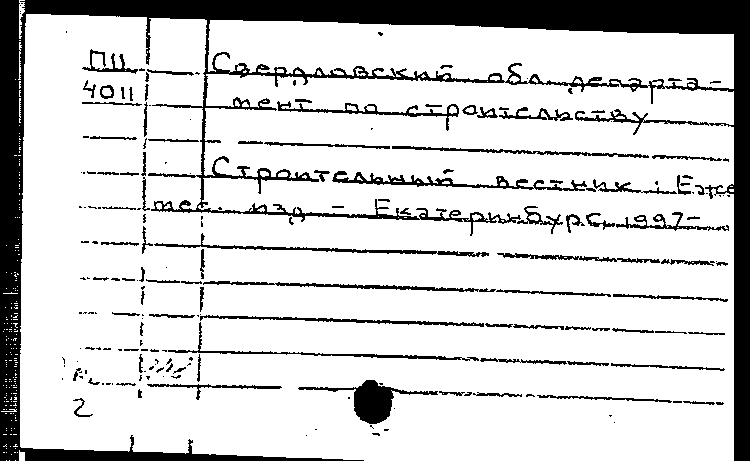 П11 Свердловский обл. департа-
4011 мент по строительству
Строительный вестник : Еже
мес. изд. - Екатеринбург, 1997-
2